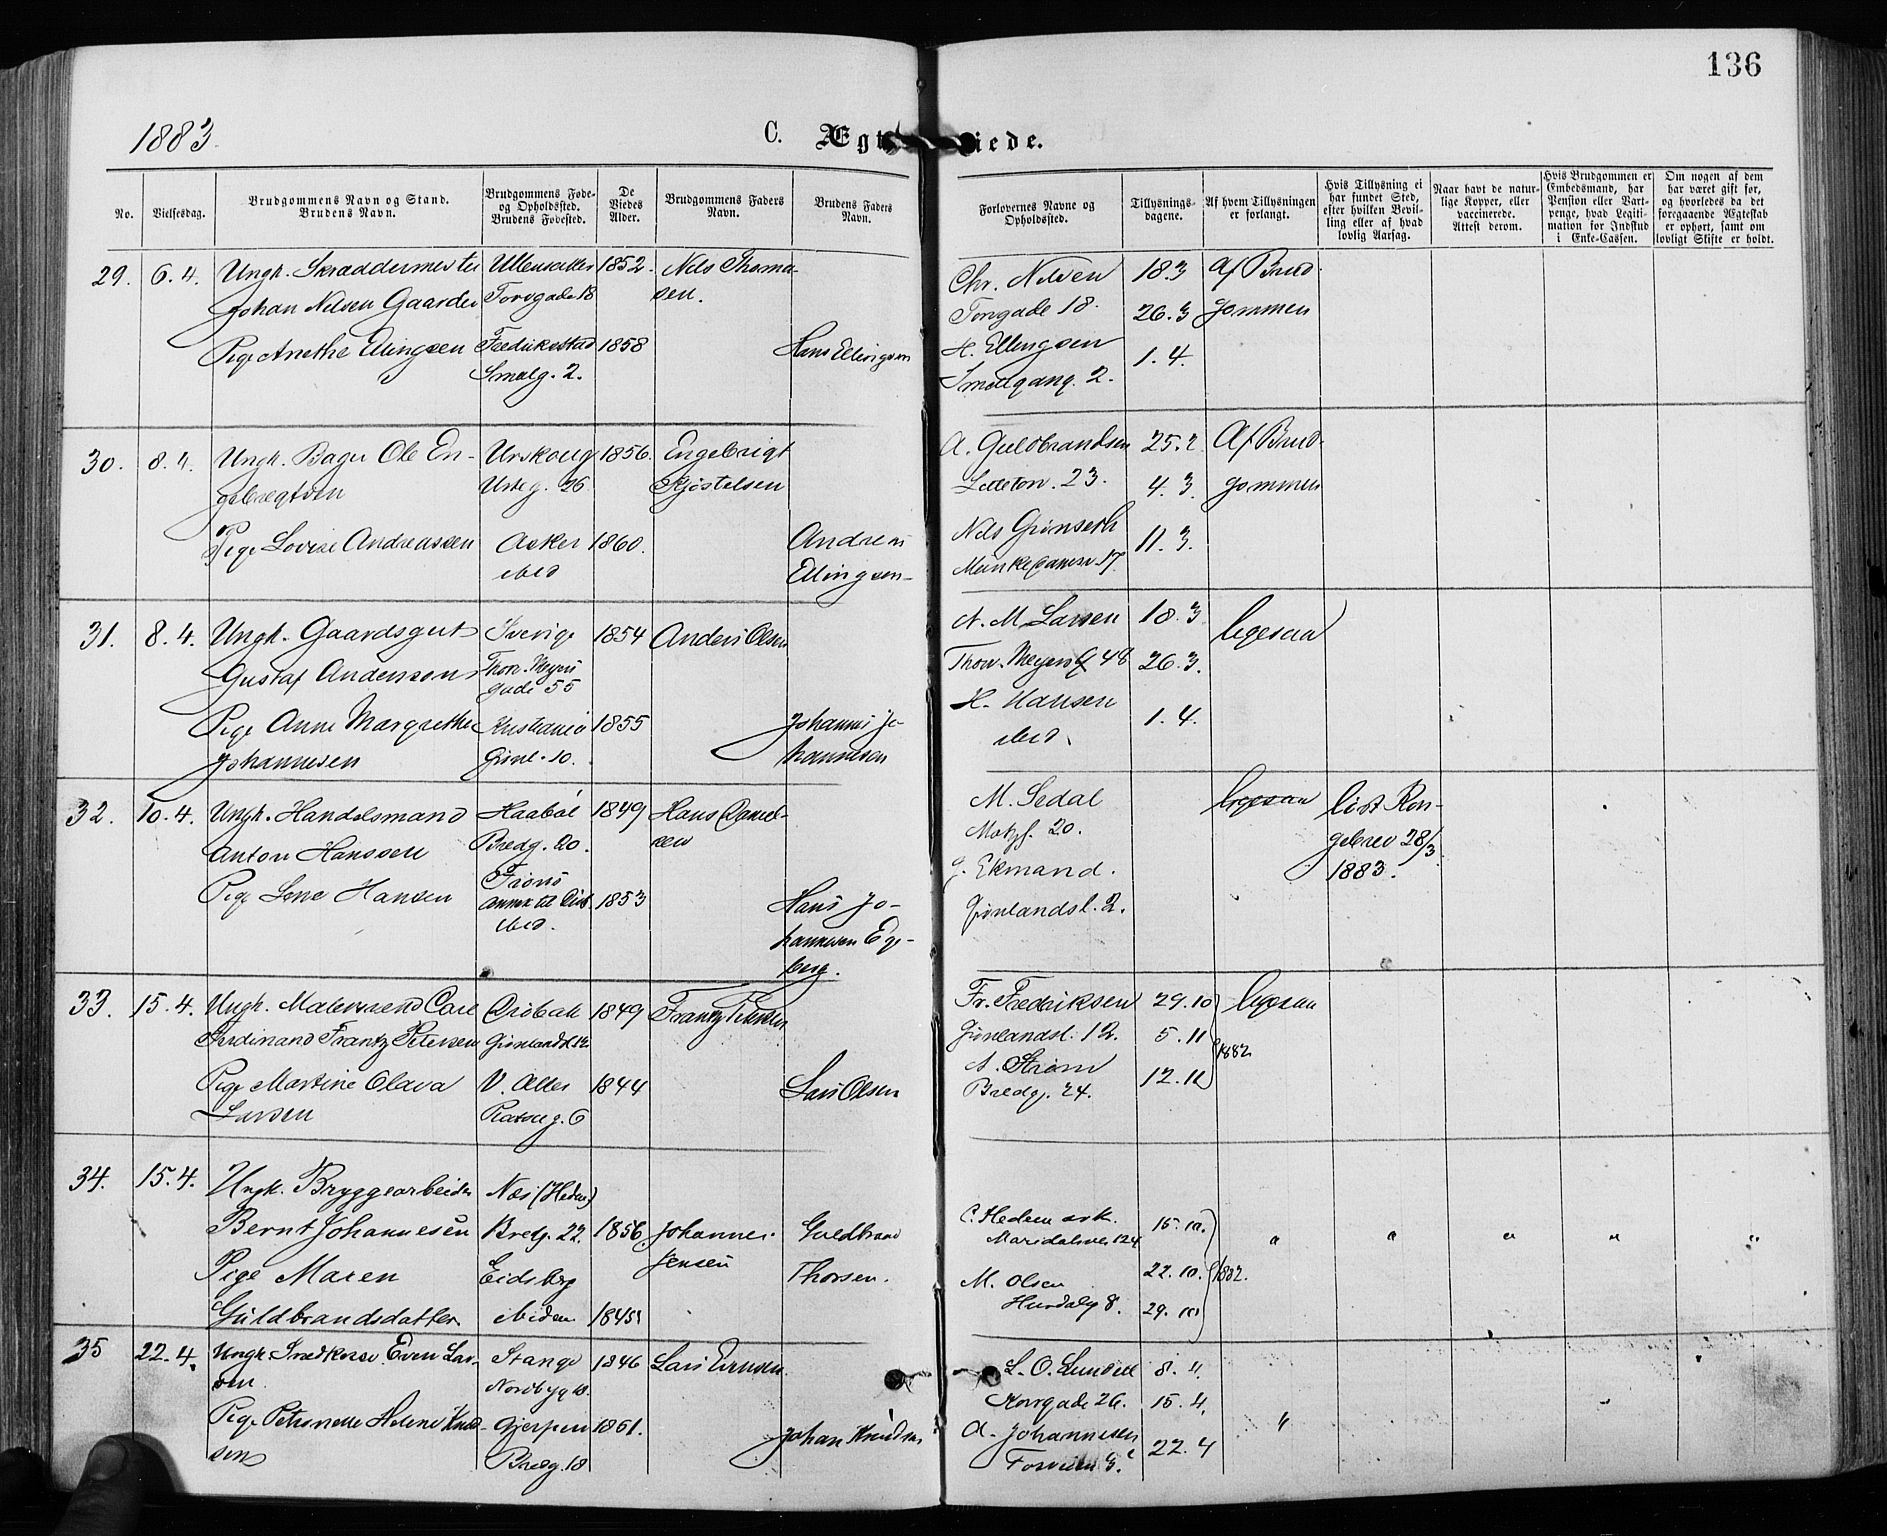 136
1883.
C. Ægt iede.
No.
Vielsesdag.
Brudgommens Navn og Stand.
Brudens Navn.
Brudgommens Føde-
og Opholdssted.
Brudens Fødested.
De
Viedes
Alder.
Brudgommens Faders
Navn.
Brudens Faders
Navn.
Forlovernes Navne og
Opholdssted.
Tillysnings-
dagene.
Af hvem Tillysningen
er forlangt.
Hvis Tillysning ei
har fundet Sted,
efter hvilken Bevil-
ling eller af hvad
lovlig Aarsag.
Naar havt de natur-
lige Kopper, eller
vaccinerede.
Attest derom.
Hvis Brudgommen er
Embedsmand, har
Pension eller Vart-
penge, hvad Legiti-
mation for Indskud
i Enke-Cassen.
Om nogen af dem
har været gift før,
og hvorledes da det
foregaaende Ægteskab
er ophørt, samt om
lovligt Skifte er holdt.
29. 6.4. Ungk. Skræddermester Ullensaker 1852. Nils Thoma- Chr. Nilsen 18.3 Af Brud-
Johan Nilsen Gaarder Torvgade 18 sen. Torvgade 18. 26.3 gommen
Pige Anethe Ellingsen Fredrikestad 1858 Hans Ellingsen H. Ellingsen 1.4.
Smalg. 2. Smalgang. 2.
30. 8.4. Ungk. Bager Ole En- Urskoug 1856. Engebrigt A. Guldbrandsen 25.2 Af Brud-
gebregtsen Urteg. 26 Kjøstelsen Lilletorv. 23. 4.3. gommen
Pige Lovise Andreassen Asker 1860. Andreas Nils Grinseth 11.3.
ibid Ellingsen
31. 8.4. Ungk. Gaardsgut Sverige 1854 Anders Olsen A. M. Larsen 18.3 ligesaa
Gustaf Anderssen Thorv. Meyers Thorv. Meyers G 48 26.3.
gade 55 H. Hansen
Pige Anne Margrethe Kristiania 1855 Johannes Jo- ibid. 1.4.
Johannesen Grønl. 10. hannesen
32. 10.4. Ungk. Handelsmand Haabøl 1849 Hans Daniel- M. Sedal ligesaa List Kon-
Anton Hanssen Bredg. 20. sen Motzf. 20. gebrev 28/3
Pige Lene Hansen annex til Eids 1853 Hans Jo- G. Ekmand. 1883.
ibid. hannesen Ege- Grønlandsl. 2.
berg.
33. 15.4. Ungk. Malersvend Carl Drøbak 1849 Frantz Petersen Fr. Fredriksen 29.10 ligesaa
Ferdinand Frantz Petersen Grønlandsl 12. Grønlandsl. 12. 5.11 1882
Pige Martine Olava V. Aker 1844 Lars Olsen A. Strøm 12.11
Larsen Platoug. 6 Bredg. 24.
34. 15.4. Ungk. Bryggearbeider Næs (Hedem)
Bernt Johannesen Bredg. 22. 1856 Johannes Guldbrand C. Hedemark. 15.10. " " " " "
Jensen Maridalsvei 124
Pige Maren Eidsberg Thorsen. M. Olsen 22.10. 1882.
Guldbrandsdatter ibidem 1845 Hurdalsg 8. 29.10
35 22.4. Ungk Snedkersv. Even Lar- Stange 1846 Lars Evensen. L. O. Lundell 8.4.
sen. Nordbyg 18. Korsgade 26. 15.4. "
Pige Petronelle Helene Knud- Gjerpen 1861. Johan Knudsen A. Johannesen 22.4
sen Bredg. 18